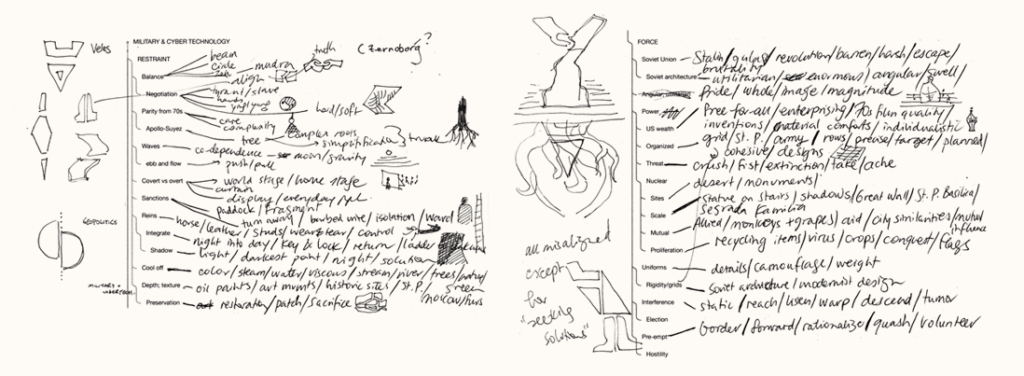 Veles
MILITARY & CYBER TECHNOLOGY
(Czernoborg?
truth
RESTRAINT
beam
circle
mudra
Balance
align
Negotiation
tyrant/slave
ying/yang
Parity from 70s
hard/soft
care
complexity
Apollo-Suyez
complex roots
tree
simplification
Waves
co-dependence
moon/gravity
ebb and flow
push/pull
Covert vs overt
world stage/home stage
curtain
Sanctions
display/everyday
paddock/fragment
GEOPOLITICS
Reins
turn away/barbed wire/isolation/ward
horse/leather/studs/wear&tear/control
Integrate
night into day/key & lock/return/ladder
Shadow
light/darkest point/night/solution
Cool off
color/steam/water/viscous/stream/river/trees/
Depth; texture
oil paints/art mvmts/historic sites/St.P./green
Preservation
restoration/patch/sacrifice
FORCE
Soviet Union
Stalin/gulag/revolution/barren/harsh/escape/
brutality
Soviet architecture
utilitarian/enormous/angular/swell/
Angular, unitarian
Pride/whole/image/magnitude
Power
Free-for-all/enterprising/70s film quality/
US wealth
inventions/material comforts/individualistic
Organized
grid/St.P./army/rows/precise/target/planned/
cohesive/designs
Threat
crush/fist/extinction/take/ache
Nuclear
desert/monuments/
Sites
statue on stairs/shadows/Great wall/St.P. Basilica/
Scale
Segrada Familia
Mutual
Allied/monkeys + grapes/aid/city similarities/mutual
influence
Proliferation
recycling items/virus/crops/conquest/flags
Uniforms
details/camouflage/weight
Rigidity/grids
Soviet architecture/modernist design
Interference
static/reach/usen/warp/descend/tumor
Election
Pre-empt
border/forward/rationalize/quash/volunteer
Hostility
all misaligned
except
for
"seeking
solutions"